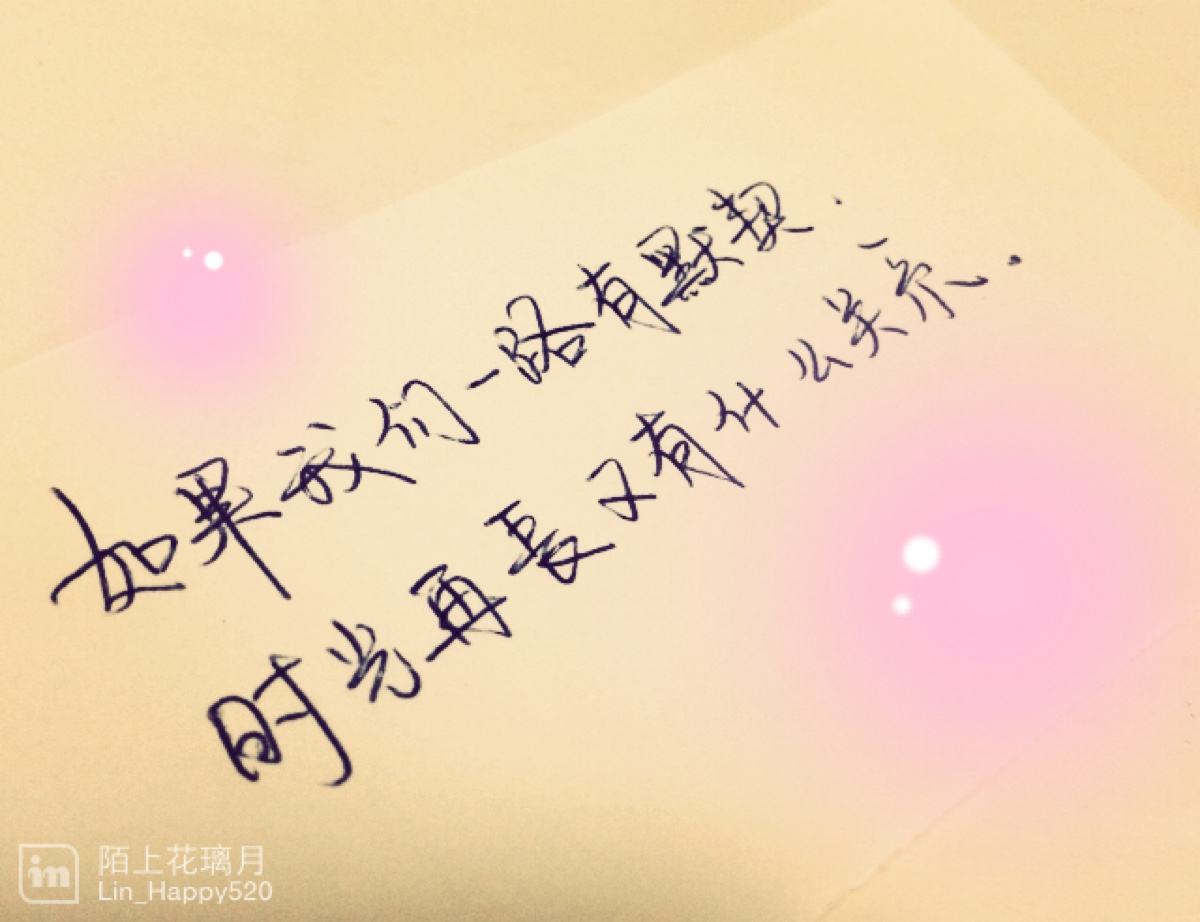 如果我们一路有默契.
时光再長又有什么关系.
陌上花璃月
Lin_Happy520